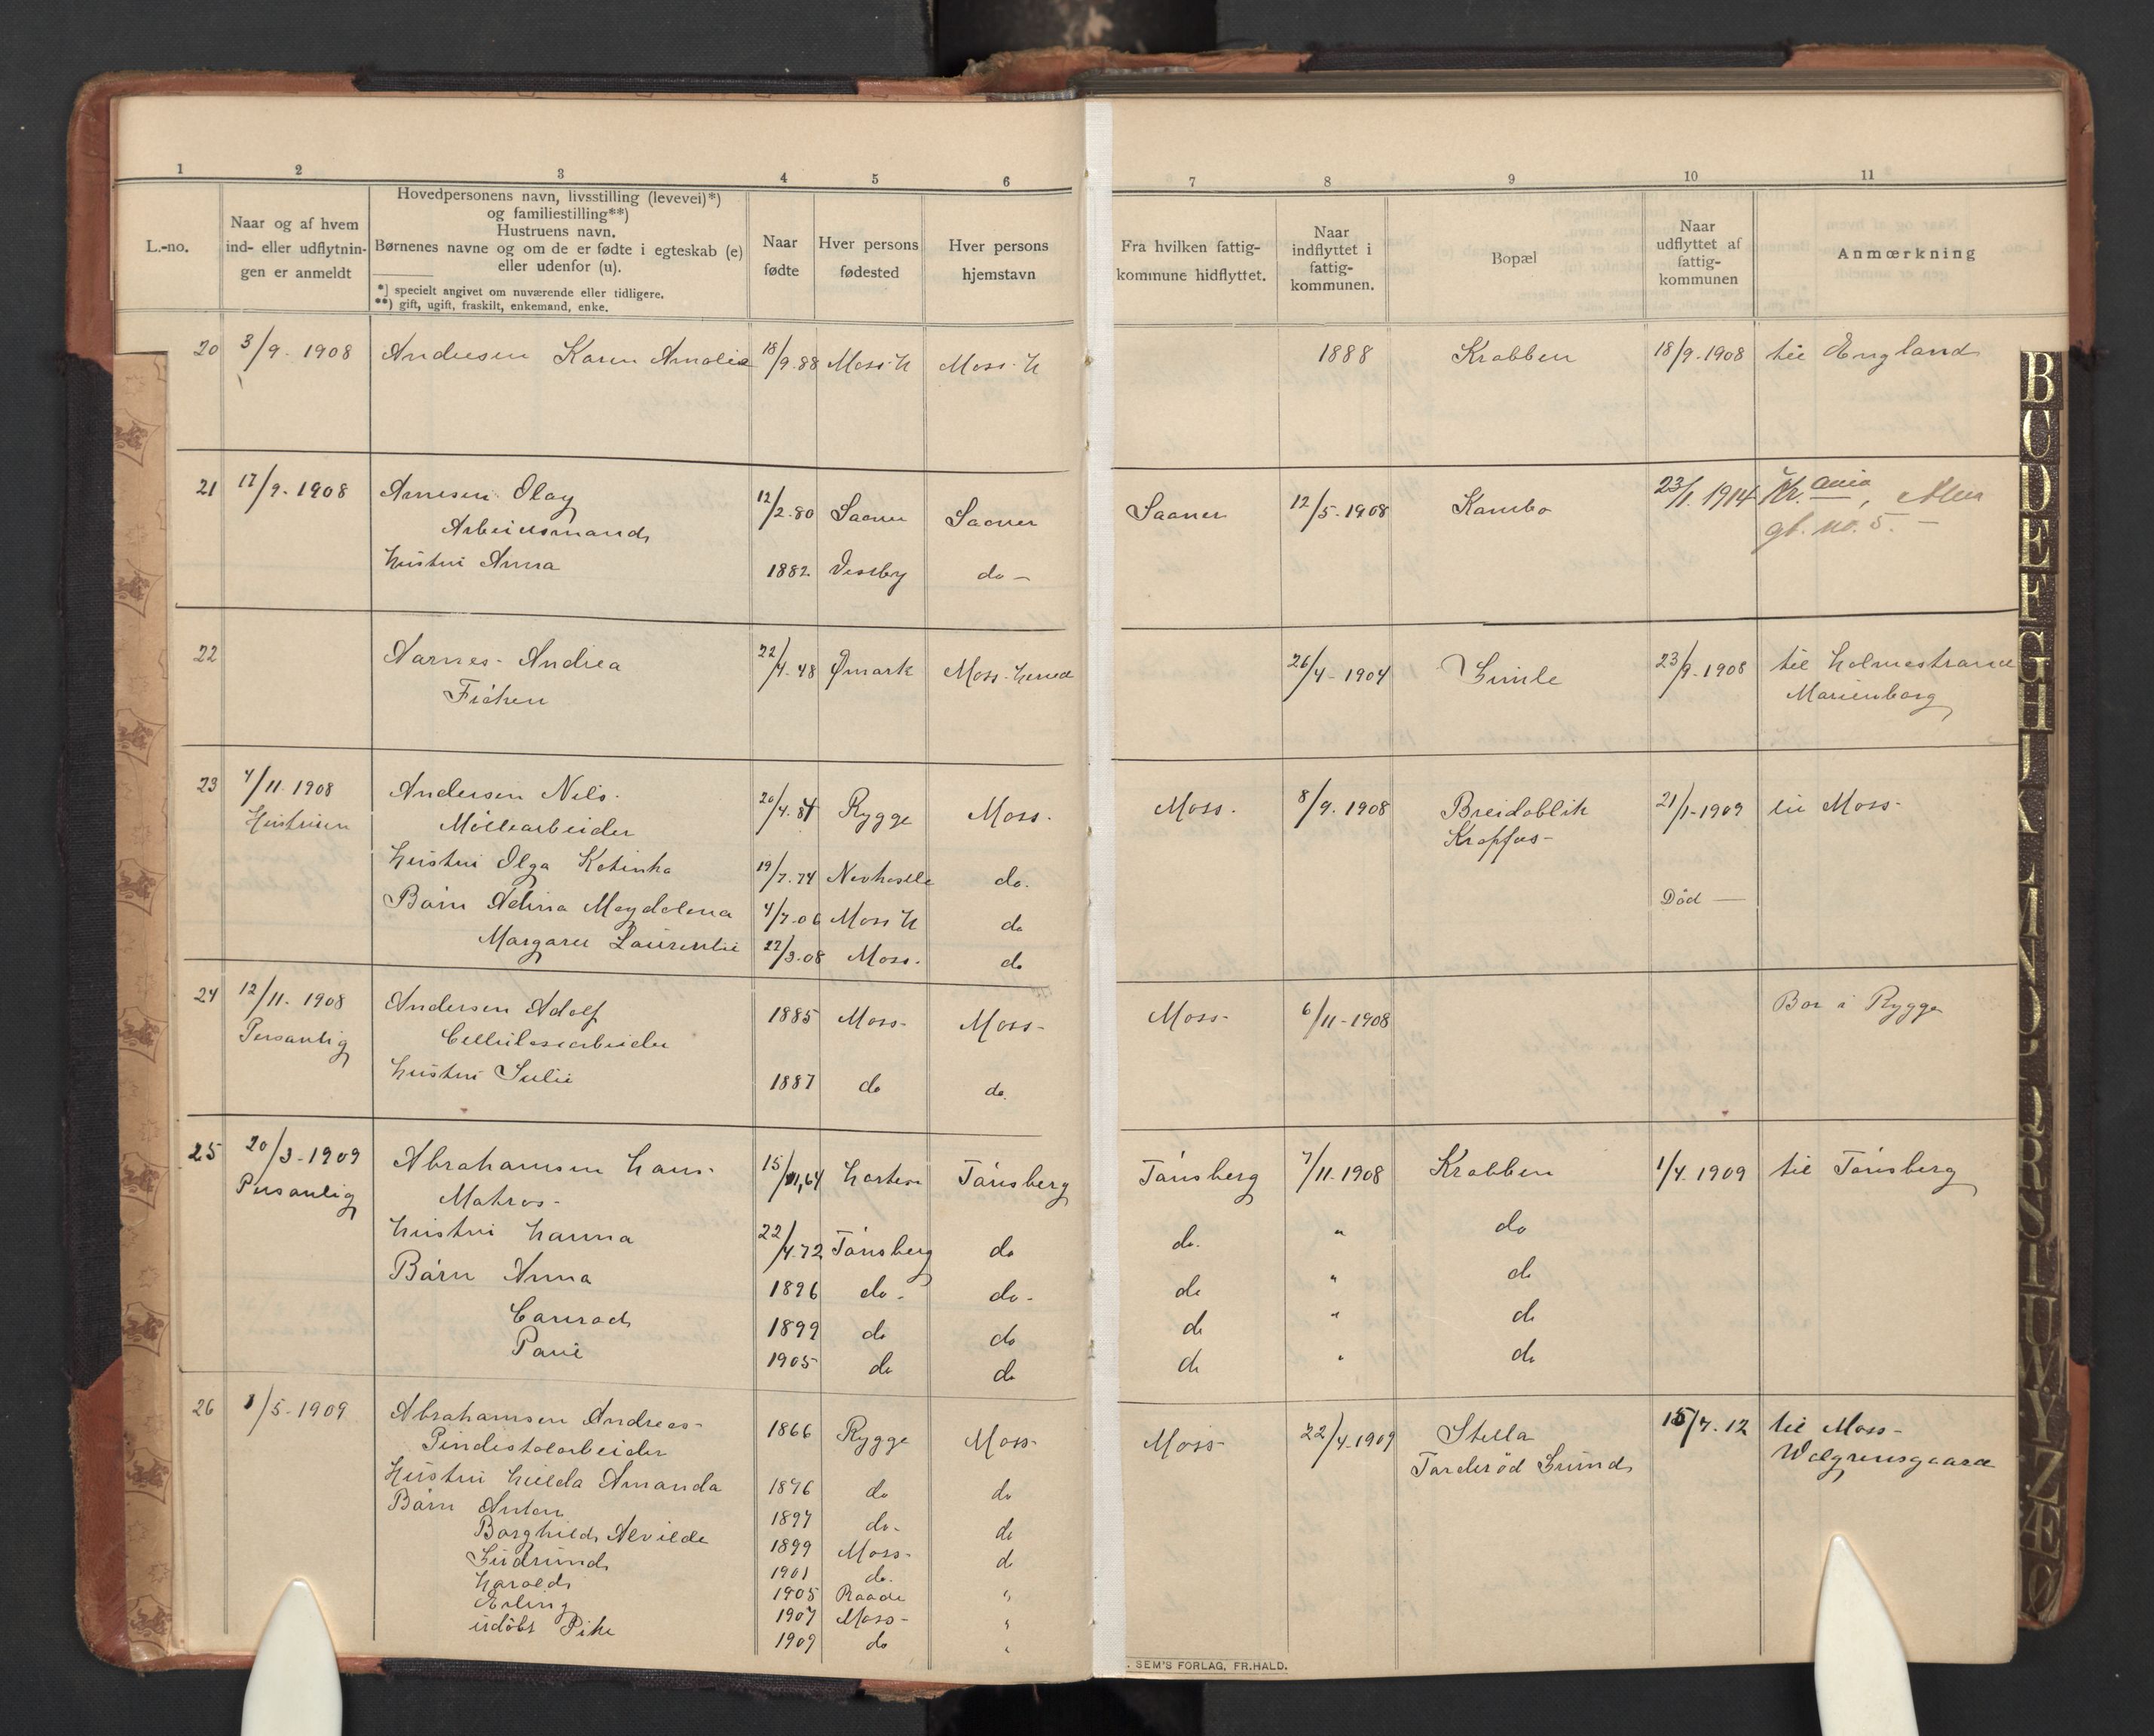 1 2 3 4 5 6 7 8 9 10 11
L.-no.
Naar og af hvem
ind- eller udflytnin-
gen er anmeldt
Hovedpersonens navn, livsstilling (levevei)*)
og familiestilling**)
Hustruens navn.
Børnenes navne og om de er fødte i egteskab (e)
eller udenfor (u).
*) specielt angivet om nuværende eller tidligere.
**) gift, ugift, fraskilt, enkemand, enke.
Naar
fødte
Hver persons
fødested
Hver persons
hjemstavn
Fra hvilken fattig-
kommune hidflyttet.
Naar
indflyttet i
fattig-
kommunen.
Bopæl
Naar
udflyttet af
fattig-
kommunen
Anmærkning
20 3/9. 1908 Andresen Karen Amalie 18/9.88 Moss. H Moss. H 1888 Krabben 18/9.1908 til England
21 17/9. 1908 Arnesen Olag 12/2.80 Saaner Saaner Saaner 12/5.1908 Kambo 23/1. 1914 Kr. ania,
Arbeidsmand gt. no. 5. –
Hustru Anna 1882 Vestby do –
22 Aarnes. Andrea 22/4.48 Ømark Moss. Herred 26/4. 1904 23/9.1908 til Holmestrand
Frøken Marienborg
23 4/11. 1908 Andersen Nils. 20/4. Rygge Moss. Moss. 8/9. 1908 Breidablik 21/1-1909 til Moss-
Hustruen Møllearbeider Krapfos-
Hustru Olga Katinka 19/7.74 do.
Børn Adina Magdalena 4/7.06 Moss H do Død –
Margaret Laurentie 22/3.08 Moss. do
24 12/11. 1908 Andersen Adolf 1885 Moss- Moss- Moss- 6/11-1908 Bor i Rygge
Personlig Cellulosearbeider
Hustru Julie 1887 do do.
25 20/3-1909 Abrahamsen Hans- 15/11,64 Horten Tønsberg Tønsberg 7/11.1908 Krabben 1/4.1909 til Tønsberg
Personlig Matros-
Hustru Hanna 22/4.72 Tønsberg do do. " do
Børn Anna 1896 do- do- do " do
Conrad 1899 do do do " do
Paul 1905 do do do " do
26 1/5-1909 Abrahamsen Andreas- 1866 Rygge Moss- Moss- 22/4.1909 Stella 15/7.12 til Moss-
Pindestolarbeider Tarderød Grund Walgrensgaard
Hustru Hilda Amanda 1876 do do
Børn Anton 1897 do- do
Borghild Alvilde 1899 Moss- do
Gudrund 1901 do.
Harald 1905 Raade "
Erling 1907 Moss- "
udøbt Pike 1909 do "
. SEM'S FORLAG, FR.HALD.
B
C
D
E
F
G
H
I
J
K
L
M
N
O
P
Q
R
S
T
U
V
Y
Z
Æ
Ø